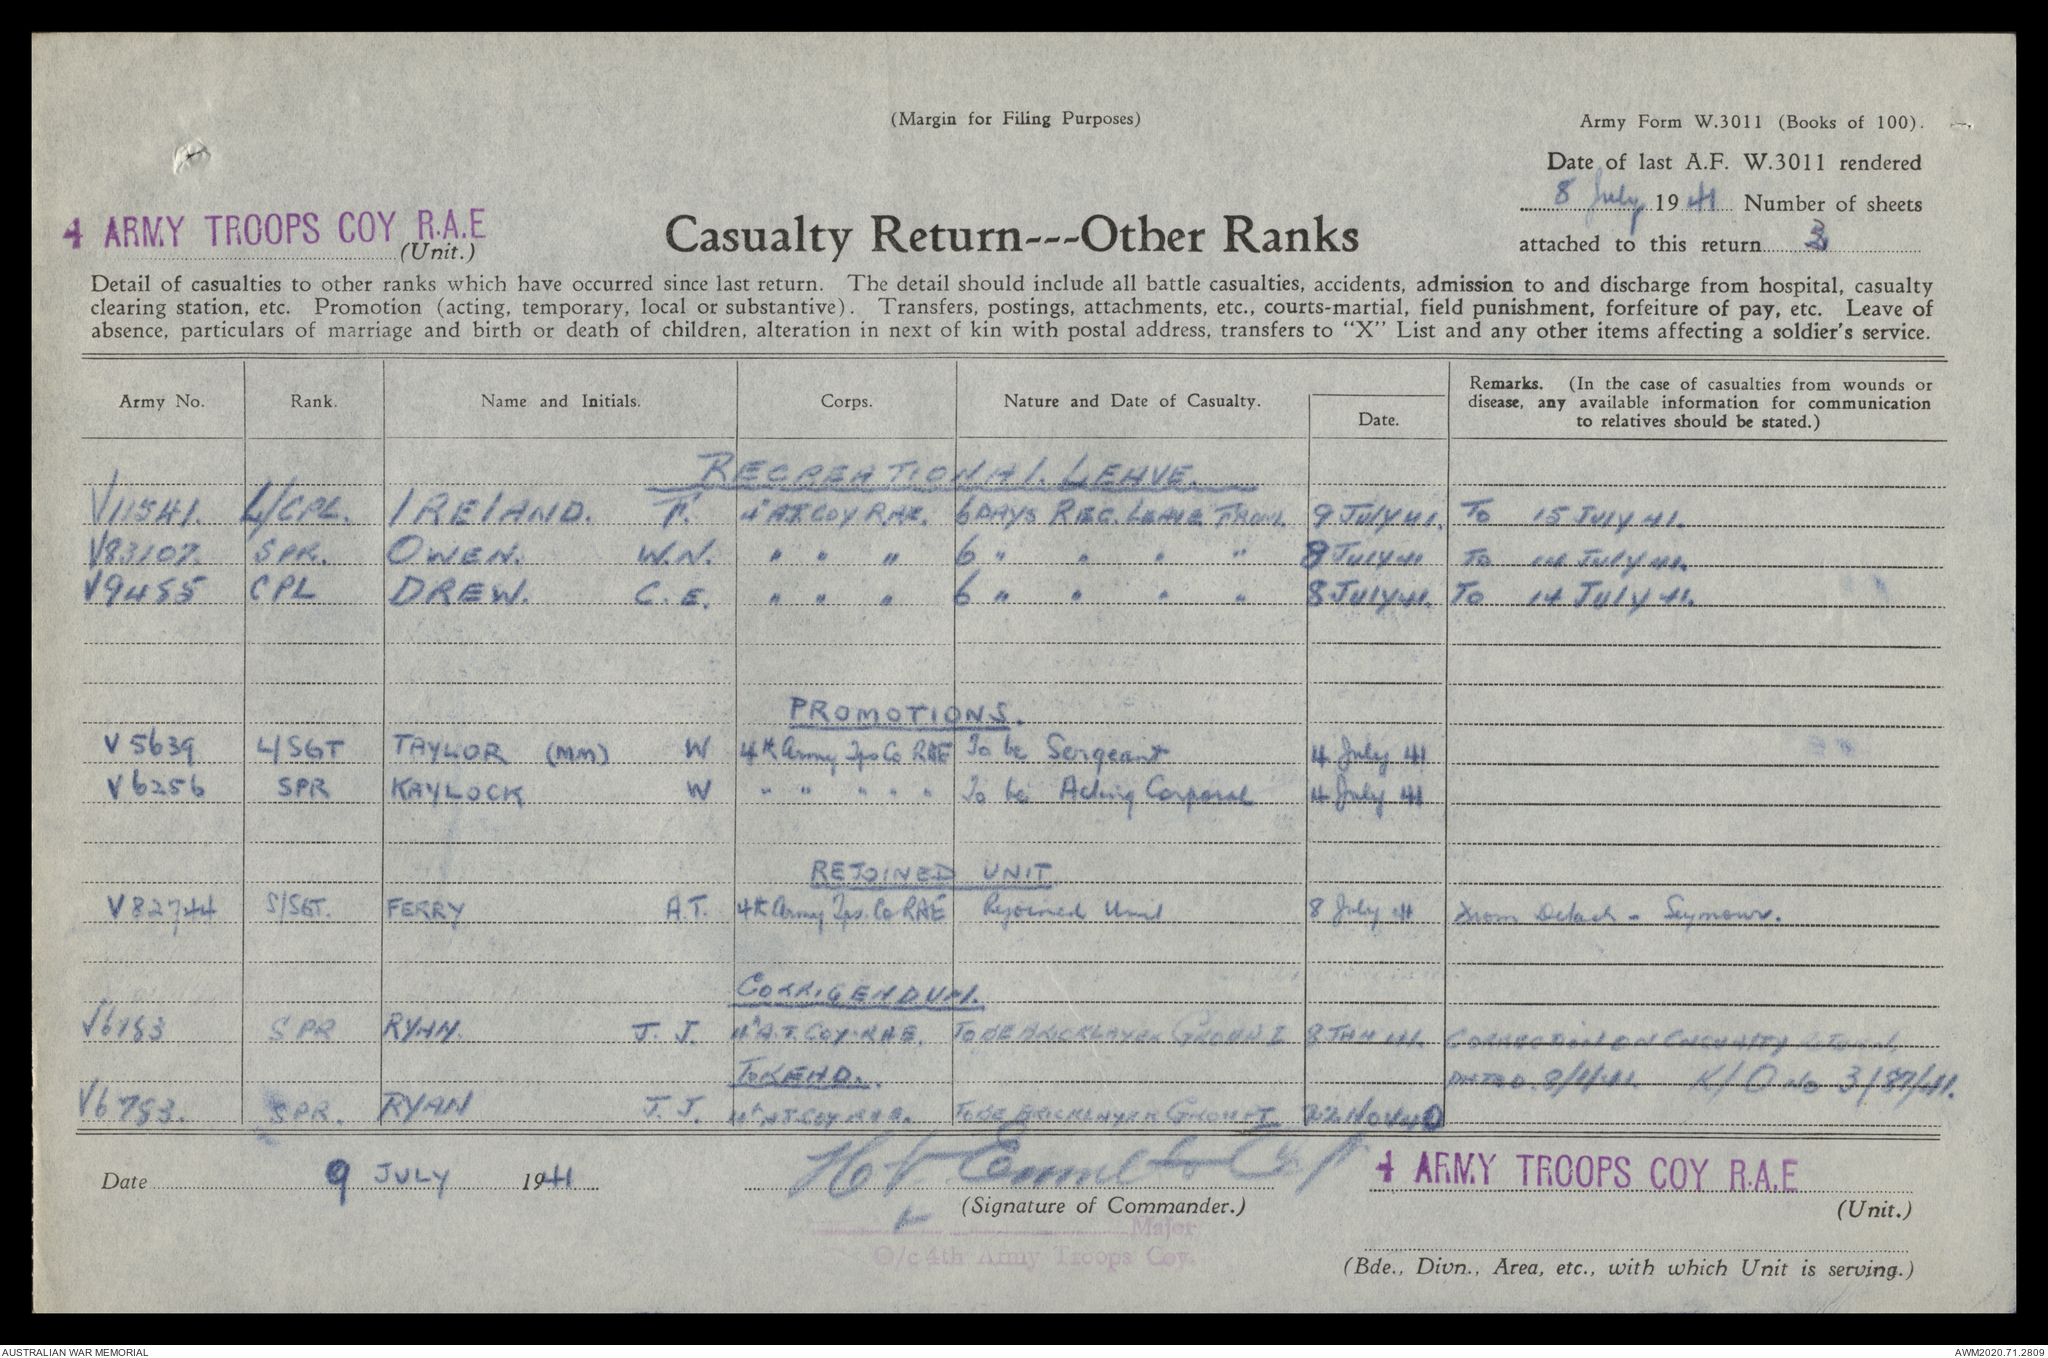 (Margin for Filing Purposes)
Army Form W.3011 (Books of 100).
Date of last A.F. W.3011 rendered
8 July 1941 Number of sheets
attached to this return 3
4 ARMY TROOPS COY R.A.E
(Unit.)
Casualty Return---Other Ranks
Detail of casualties to other ranks which have occurred since last return. The detail should include all battle casualties, accidents, admission to and discharge from hospital, casualty
clearing station, etc. Promotion (acting, temporary, local or substantive). Transfers, postings, attachments, etc., courts-martial, field punishment, forfeiture of pay, etc. Leave of
absence, particulars of marriage and birth or death of children, alteration in next of kin with postal address, transfers to "X" List and any other items affecting a soldier's service.
Army No. Rank. Name and Initials. Corps. Nature and Date of Casualty. Date. Remarks. (In the case of casualties from wounds or
disease, any available information for communication
to relatives should be stated.)
RECREATIONAL LEAVE.
V11541. L/CPL. IRELAND. F. 4 A.T. COY RAE. 6 DAYS REC. LEAVE FROM 9 JULY 41. TO 15 JULY 41.
V83107. SPR. OWEN. W.N. " " " 6 " " " " 8 JULY 41 TO 14 JULY 41.
V9455 CPL DREW. C.E. " " " 6 " " " " 8 JULY 41. TO 14 JULY 41.
PROMOTIONS.
V5639 L/SGT TAYLOR (MM) W 4th Army Tps Co RAE To be Sergeant 4 July 41
V6256 SPR KAYLOCK W " " " " " To be Acting Corporal 4 July 41
REJOINED UNIT
V82744 S/SGT. FERRY A.T. 4th Army Tps. Co RAE Rejoined Unit 8 July 41 From Detach - Seymour.
CORRIGENDUM.
V6753 SPR RYAN. J.J. 4th A.T. COY. RAE. TO BE BRICKLAYER GROUP I 8 JAN 41. CORRECTION ON CASUALTY RETURN,
TO READ. DATED. 8/1/41. K/O No 3/87/41.
V6753. SPR. RYAN J.J. 4th A.T. COY RAE. TO BE BRICKLAYER GROUP I 22 NOV 40
Date 9 JULY 1941
Capt
(Signature of Commander.)
Major
O/c 4th Army Troops Coy.
4 ARMY TROOPS COY R.A.E
(Unit.)
(Bde., Divn., Area, etc., with which Unit is serving.)
AUSTRALIAN WAR MEMORIAL
AWM2020.71.2809